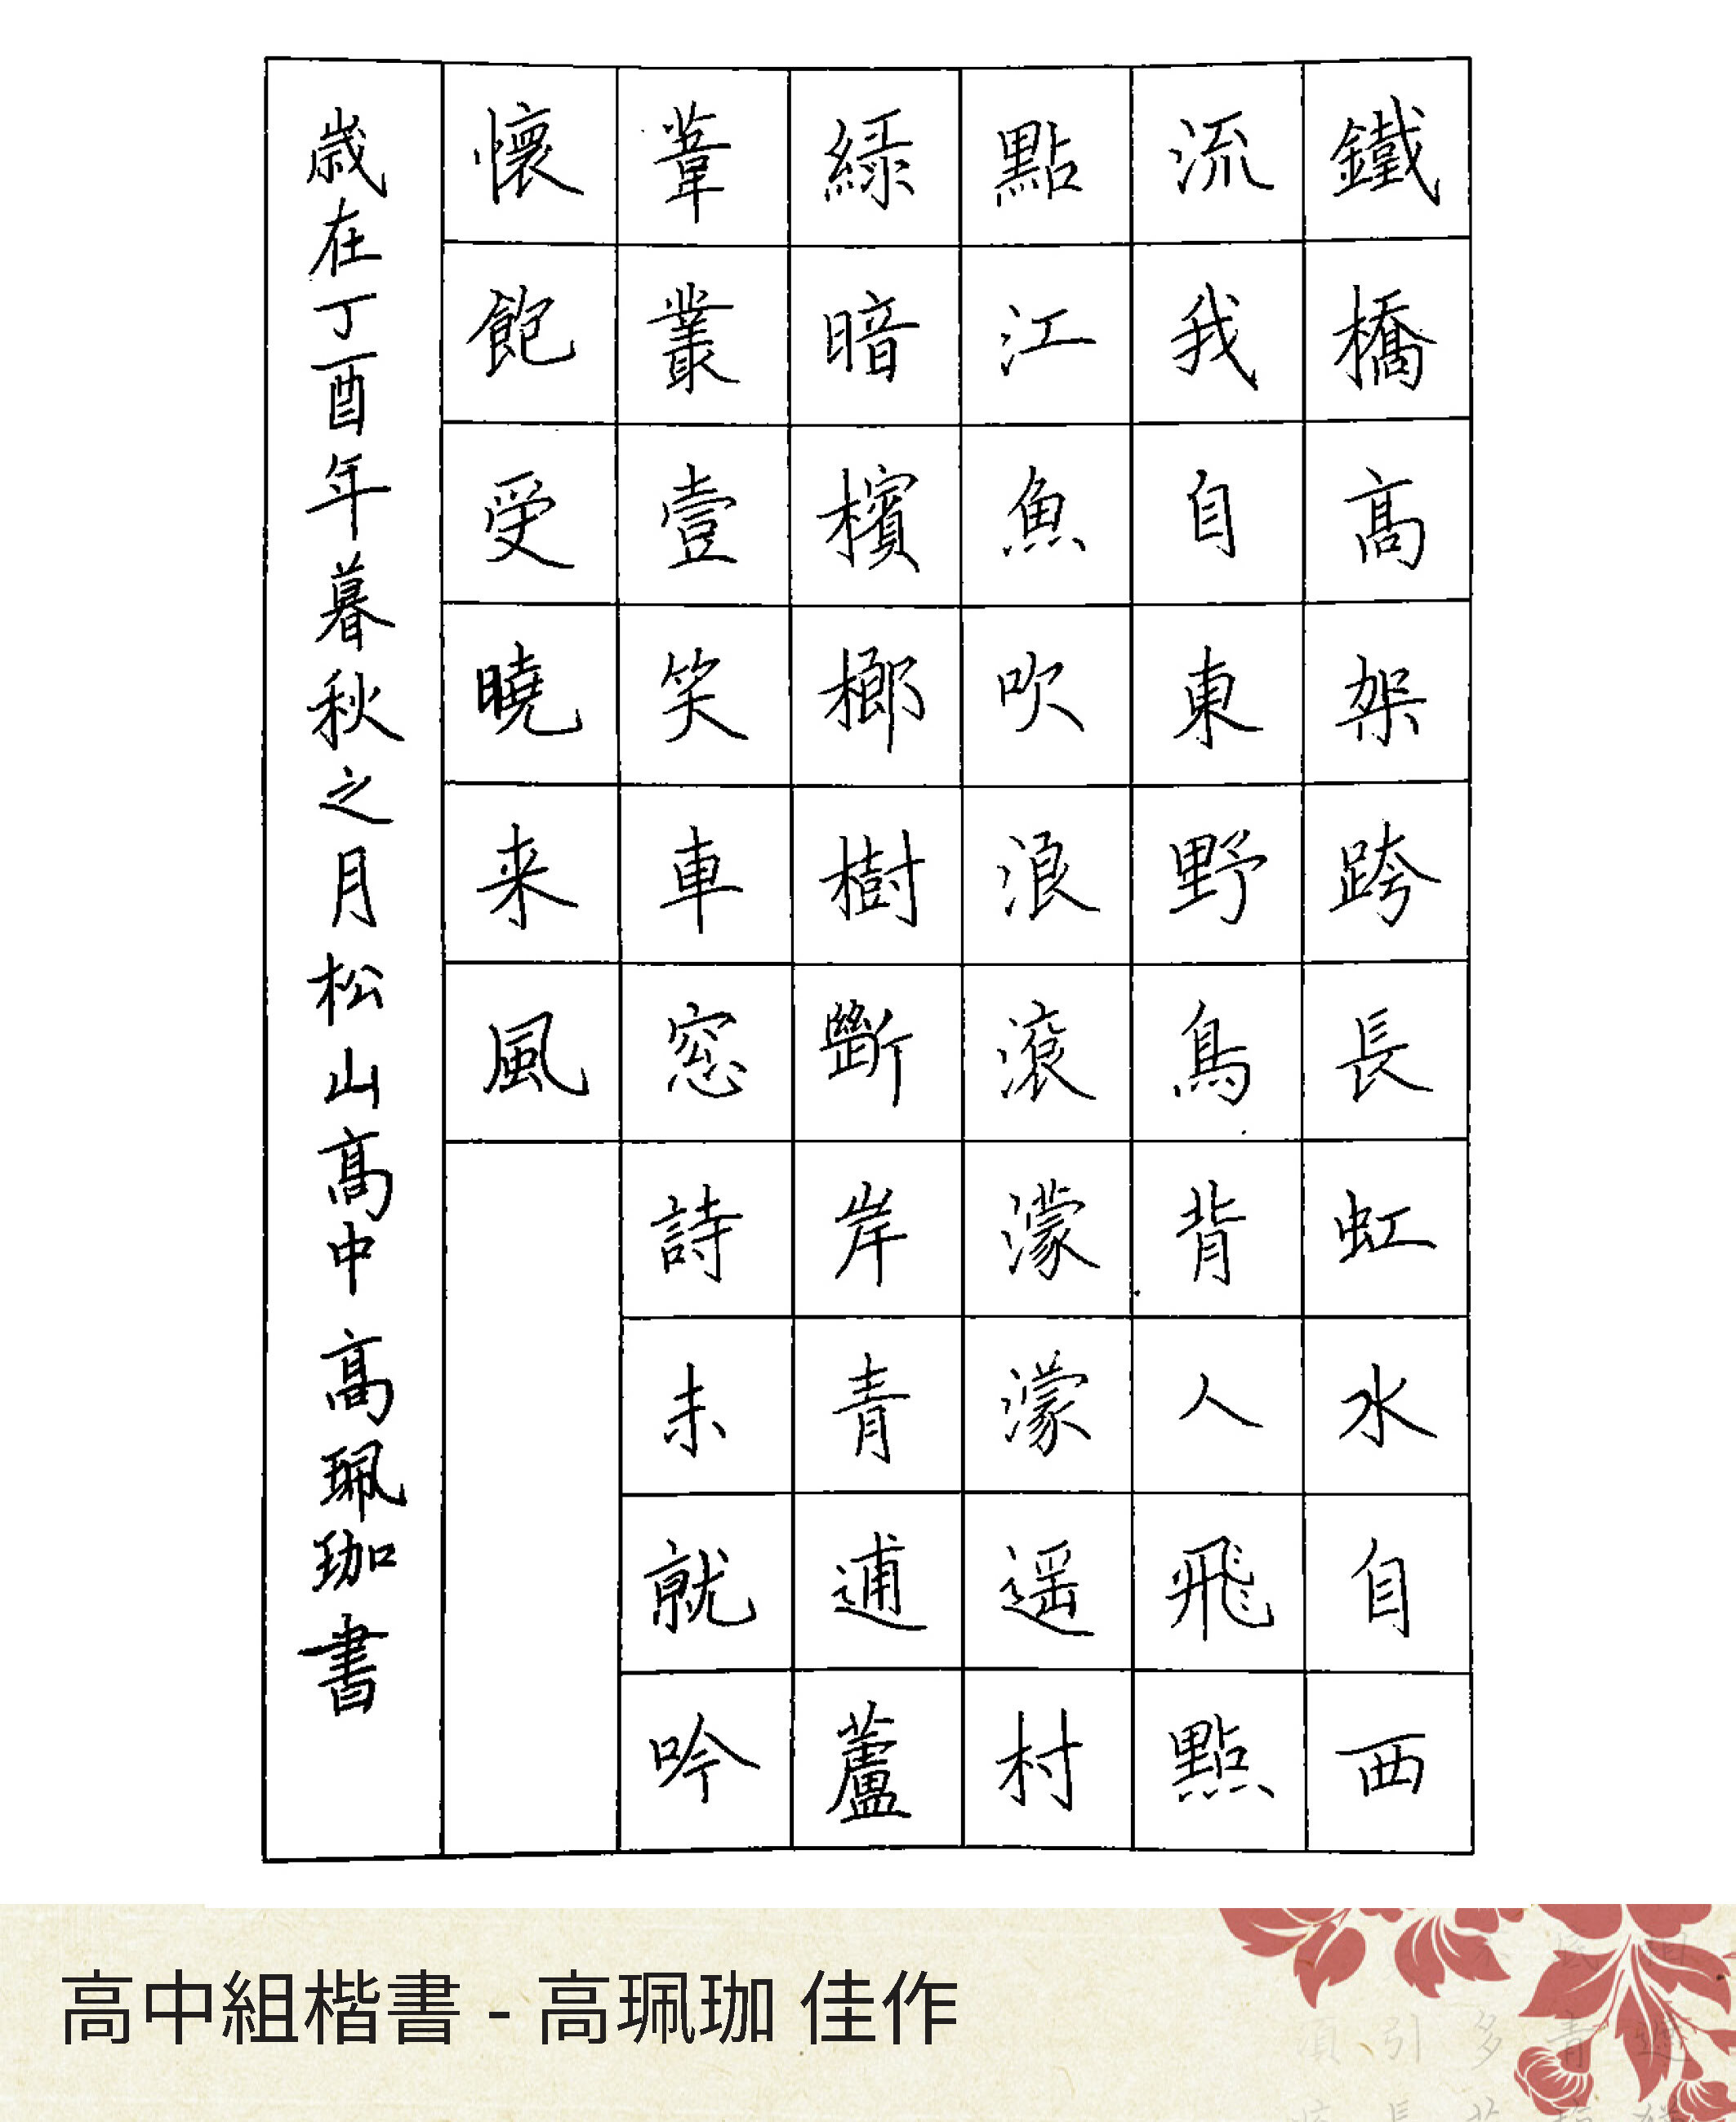 鐵橋高架跨長虹水自西
流我自東野鳥背人飛點
點江魚吹浪滾濛濛遥村
緑暗檳榔樹斷岸青逋蘆
葦叢壹笑車窓詩未就吟
懷飽受曉来風
歳在丁酉年暮秋之月松山高中高珮珈書
高中組楷書 - 高珮珈 佳作